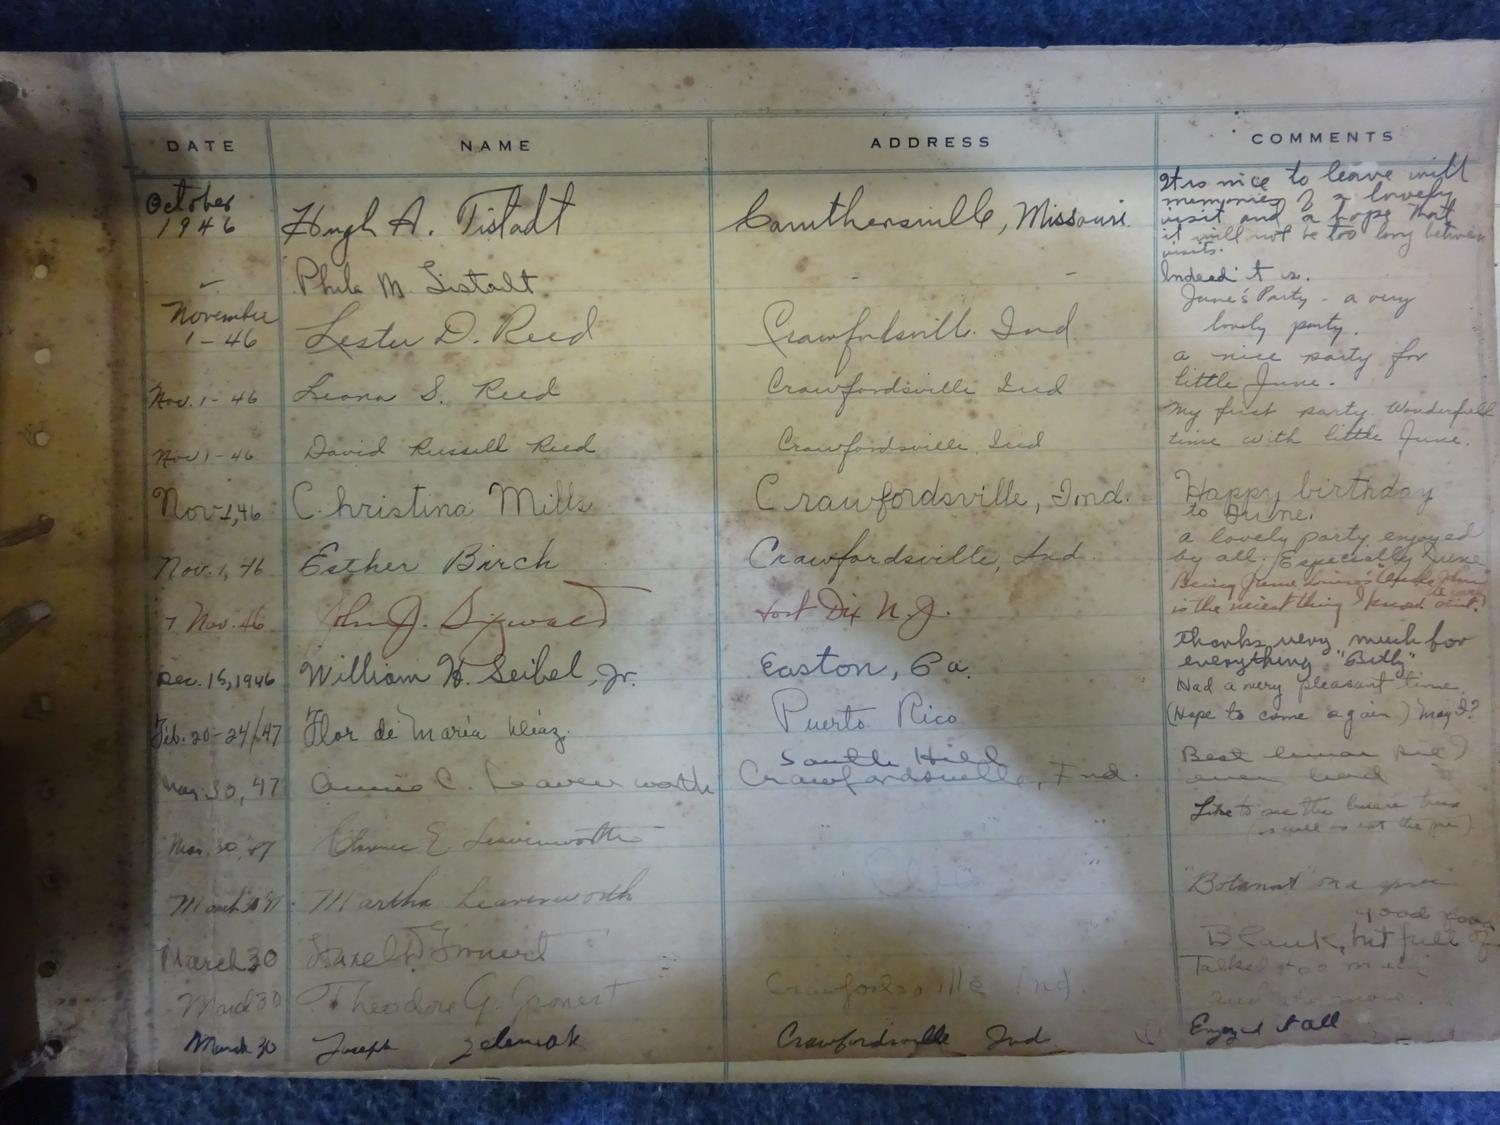 DATE NAME ADDRESS COMMENTS
October 1946 Hugh A. Tistadt Caruthersville, Missouri.
It is nice to leave with
memories of a lovely
visit and a hope that
it will not be too long between
visits.
Phila M. Tistadt - - Indeed it is.
November 1-46 Lester D. Reed Crawfordsville Ind
June's Party - a very
lovely party.
Nov. 1-46 Leona S. Reed Crawfordsville Ind
a nice party for
little June.
Nov 1-46 David Russell Reed Crawfordsville, Ind
My first party. Wonderful
time with little June.
Nov 1, 46 Christina Mills Crawfordsville, Ind.
Happy birthday
to June.
Nov. 1, 46 Esther Birch Crawfordsville, Ind.
a lovely party enjoyed
by all. Especially June
7 Nov. 46 John J. Fort Dix N.J.
Being
is the nicest thing I know
Dec. 15, 1946 William H. Seibel, Jr. Easton, Pa.
Thanks very much for
everything "Billy"
Feb. 20-24/47 Flor de María Díaz. Puerto Rico
Had a very pleasant time.
(Hope to come again) May I?
Mar 30, 47 Annie C. Leavenworth South Hill
Crawfordsville, Ind.
Best lemon pie I
ever had
Mar. 30, 47 Leavenworth " "
Like to see the
March 30 Martha Leavenworth
"Botanist" on a
good food
March 30 Hazel
Blank, but full of
March 30 Theodore G. Gronert Crawfordsville Ind.
Talked too much
and ate more.
March 30 Joseph Crawfordsville Ind Enjoyed it all